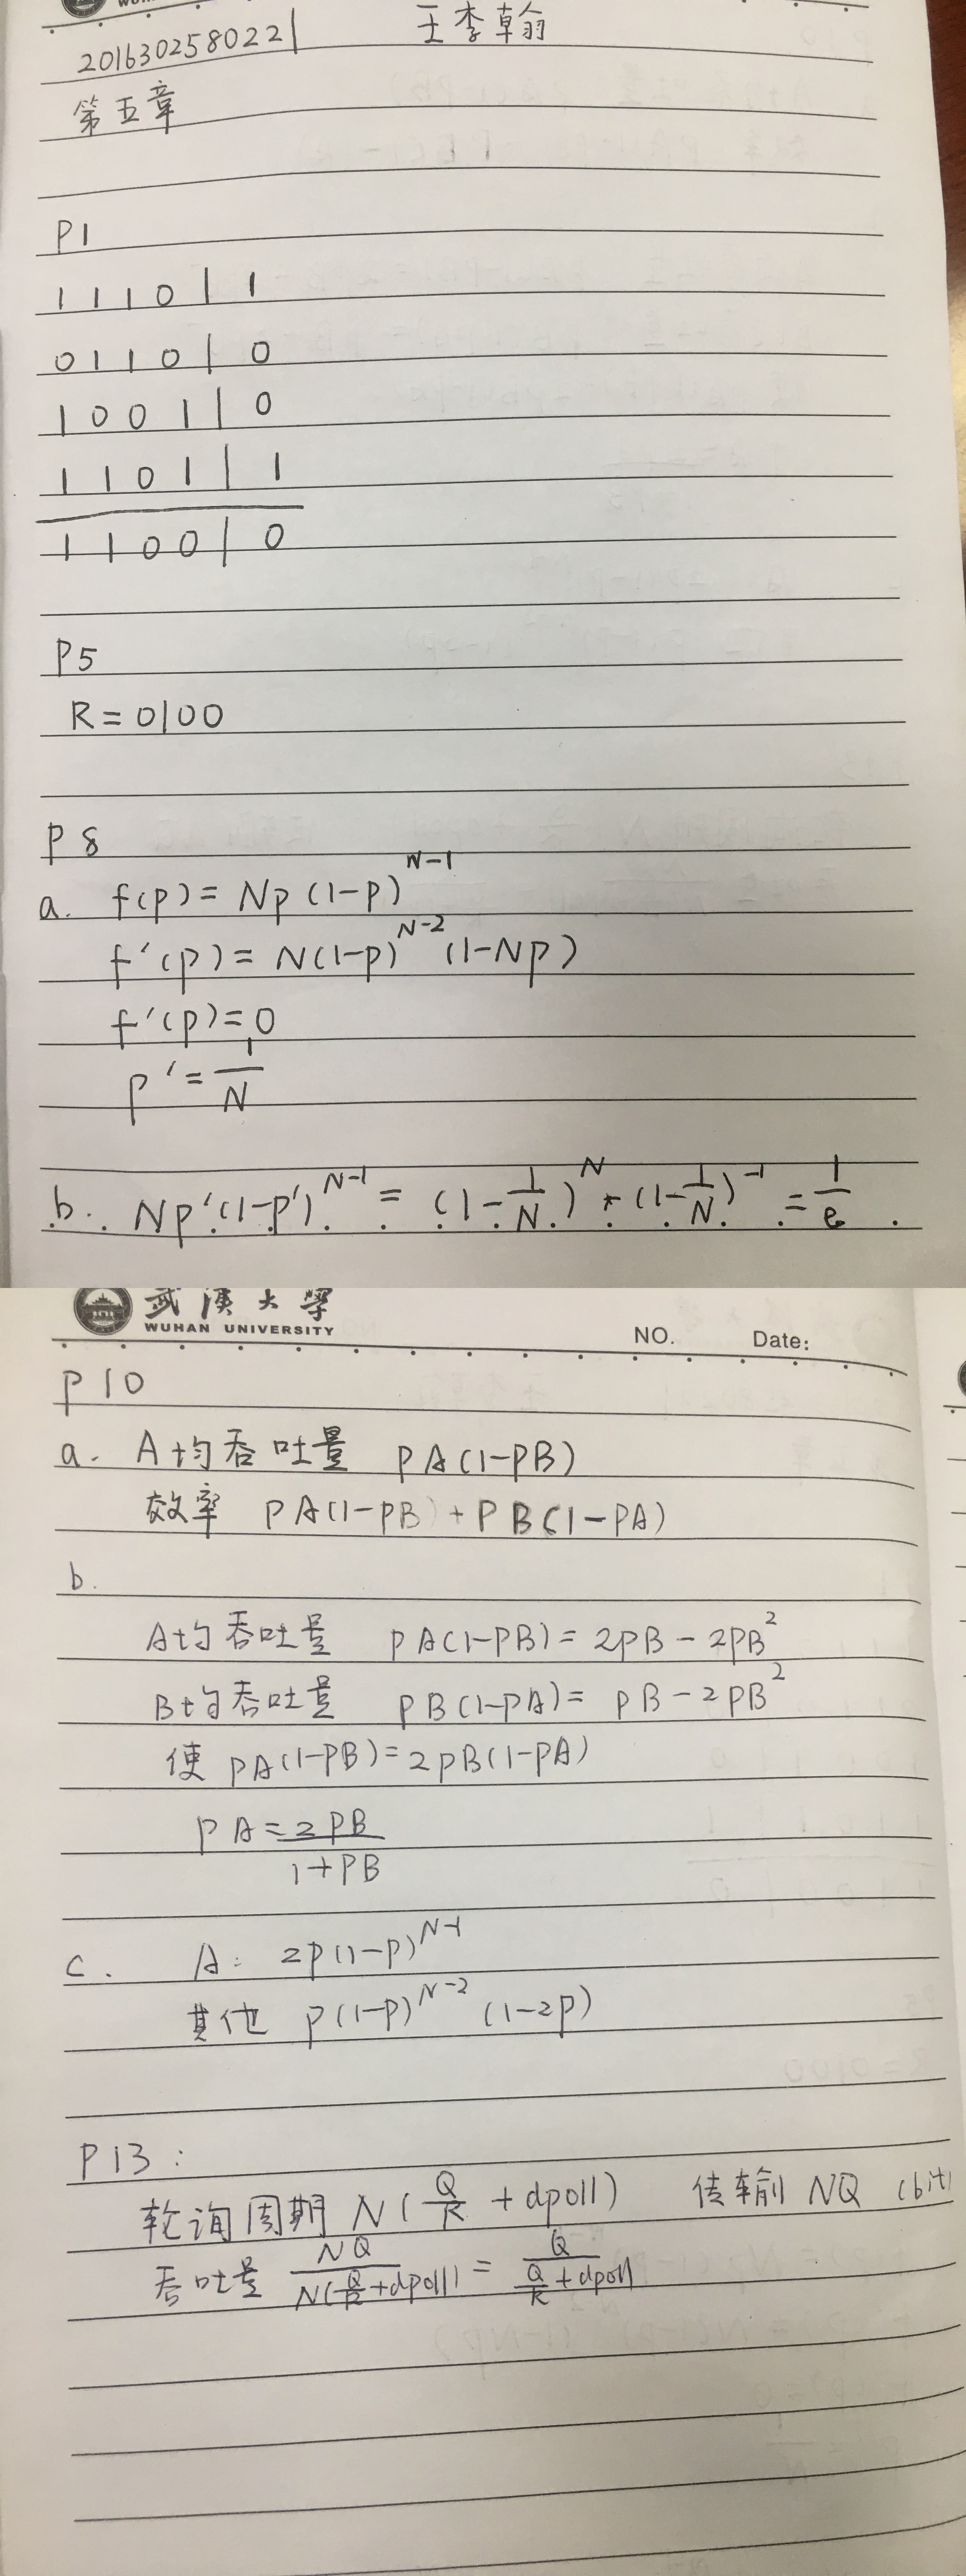 2016302580221 王李翰
第五章
P1
1 1 1 0 | 1
0 1 1 0 | 0
1 0 0 1 | 0
1 1 0 1 | 1
1 1 0 0 | 0
P5
R = 0100
P8
a. f(p) = Np(1-p)^{N-1}
f'(p) = N(1-p)^{N-2}(1-Np)
f'(p)=0
p' = \frac{1}{N}
b. Np'(1-p')^{N-1} = (1-\frac{1}{N})^{N} * (1-\frac{1}{N})^{-1} = \frac{1}{e}
武汉大学
WUHAN UNIVERSITY
NO. Date:
P10
a. A均吞吐量 PA(1-PB)
效率 PA(1-PB)+PB(1-PA)
b.
A均吞吐量 PA(1-PB)=2PB-2PB²
B均吞吐量 PB(1-PA)= PB-2PB²
使 PA(1-PB)=2PB(1-PA)
PA=\frac{2PB}{1+PB}
c. A: 2p(1-p)^{N-1}
其他 p(1-p)^{N-2}(1-2p)
P13:
轮询周期 N(\frac{Q}{R}+dpoll) 传输 NQ (bit)
吞吐量 \frac{NQ}{N(\frac{Q}{R}+dpoll)} = \frac{Q}{\frac{Q}{R}+dpoll}